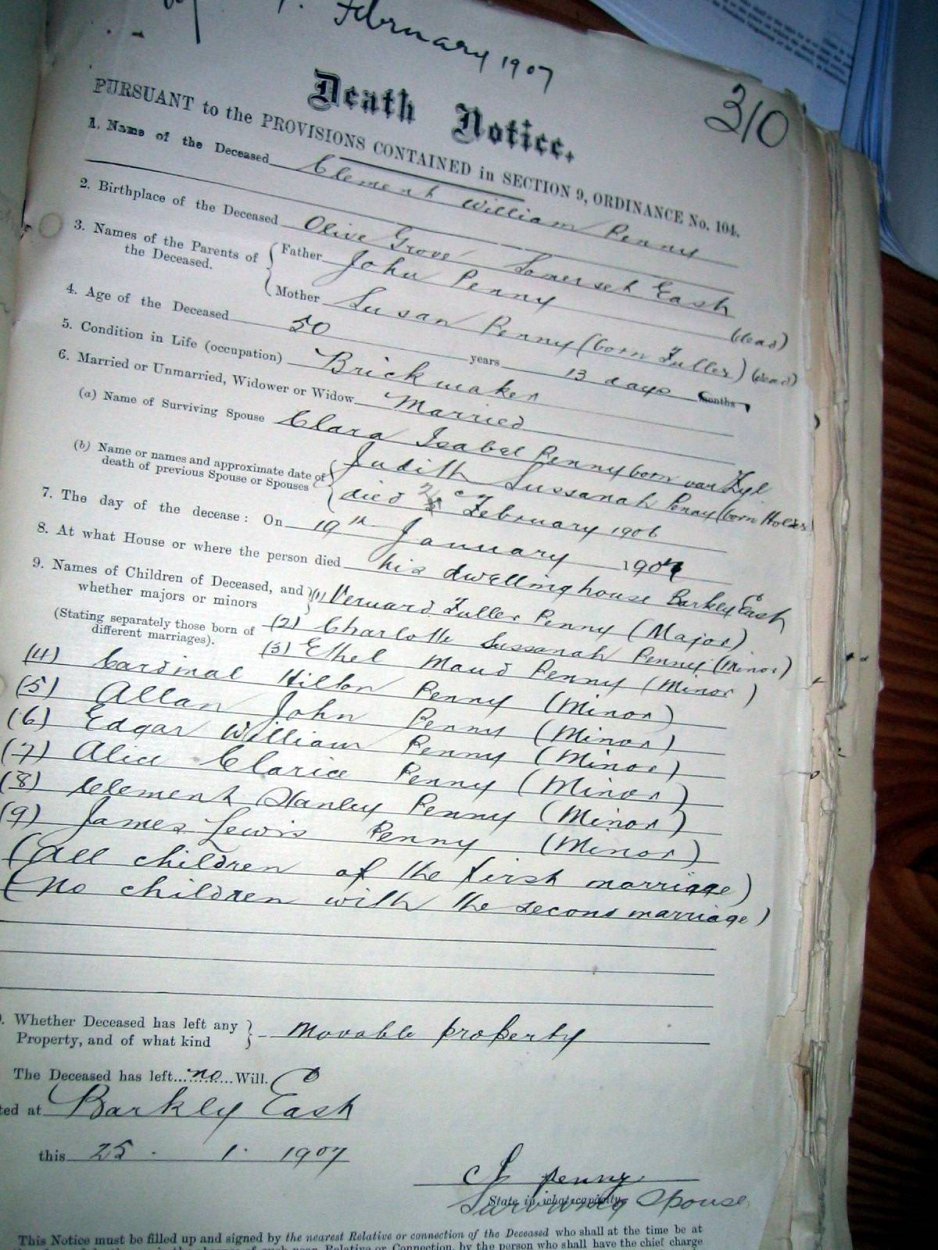 February 1907
310
Death Notice.
PURSUANT to the PROVISIONS CONTAINED in SECTION 9, ORDINANCE No. 104.
1. Name of the Deceased Clement William Penny
2. Birthplace of the Deceased Olive Grove Somerset East
3. Names of the Parents of the Deceased. { Father John Penny (dead)
Mother Susan Penny (born Fuller) (dead)
4. Age of the Deceased 50 years 13 days onths
5. Condition in Life (occupation) Brickmaker
6. Married or Unmarried, Widower or Widow Married
(a) Name of Surviving Spouse Clara Isabel Penny born van Zyl
(b) Name or names and approximate date of death of previous Spouse or Spouses { Judith Sussanah Penny (born
died February 1906
7. The day of the decease: On 19th January 1907
8. At what House or where the person died his dwellinghouse Barkly East
9. Names of Children of Deceased, and whether majors or minors } (1) Vernard Fuller Penny (Major)
(Stating separately those born of different marriages). (2) Charlotte Sussanah Penny (Minor)
(3) Ethel Maud Penny (Minor)
(4) Cardinal Hilton Penny (Minor)
(5) Allan John Penny (Minor)
(6) Edgar William Penny (Minor)
(7) Alice Clarice Penny (Minor)
(8) Clement Stanley Penny (Minor)
(9) James Lewis Penny (Minor)
(All children of the first marriage)
(No children with the second marriage)
. Whether Deceased has left any Property, and of what kind } Movable property
The Deceased has left no Will.
ted at Barkly East
this 25 . 1. 1907
C I Penny
State in what capacity
Surviving Spouse
This Notice must be filled up and signed by the nearest Relative or connection of the Deceased who shall at the time be at
Relative or Connection, by the person who shall have the chief charge